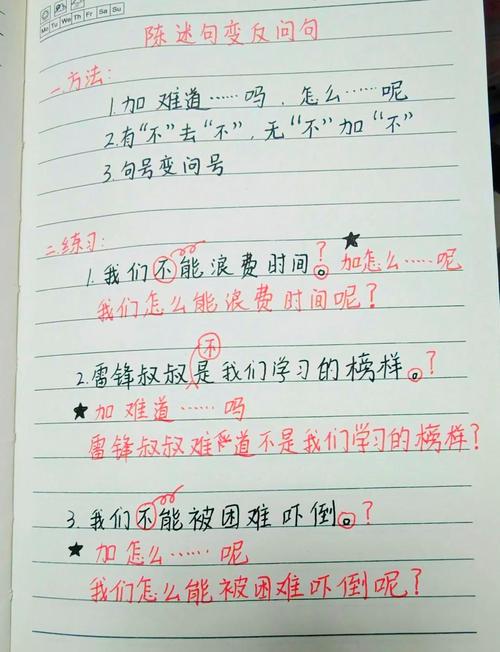 Mo Tu We Th Fr Sa Su
陈述句变反问句
一.方法:
1.加 难道……吗、怎么……呢
2.有“不”去“不”,无“不”加“不”
3.句号变问号
二.练习:
1.我们不能浪费时间。? ★加怎么……呢
我们怎么能浪费时间呢?
不
2.雷锋叔叔是我们学习的榜样。?
★加 难道……吗
雷锋叔叔难道不是我们学习的榜样?
3.我们不能被困难吓倒。?
★加怎么……呢
我们怎么能被困难吓倒呢?